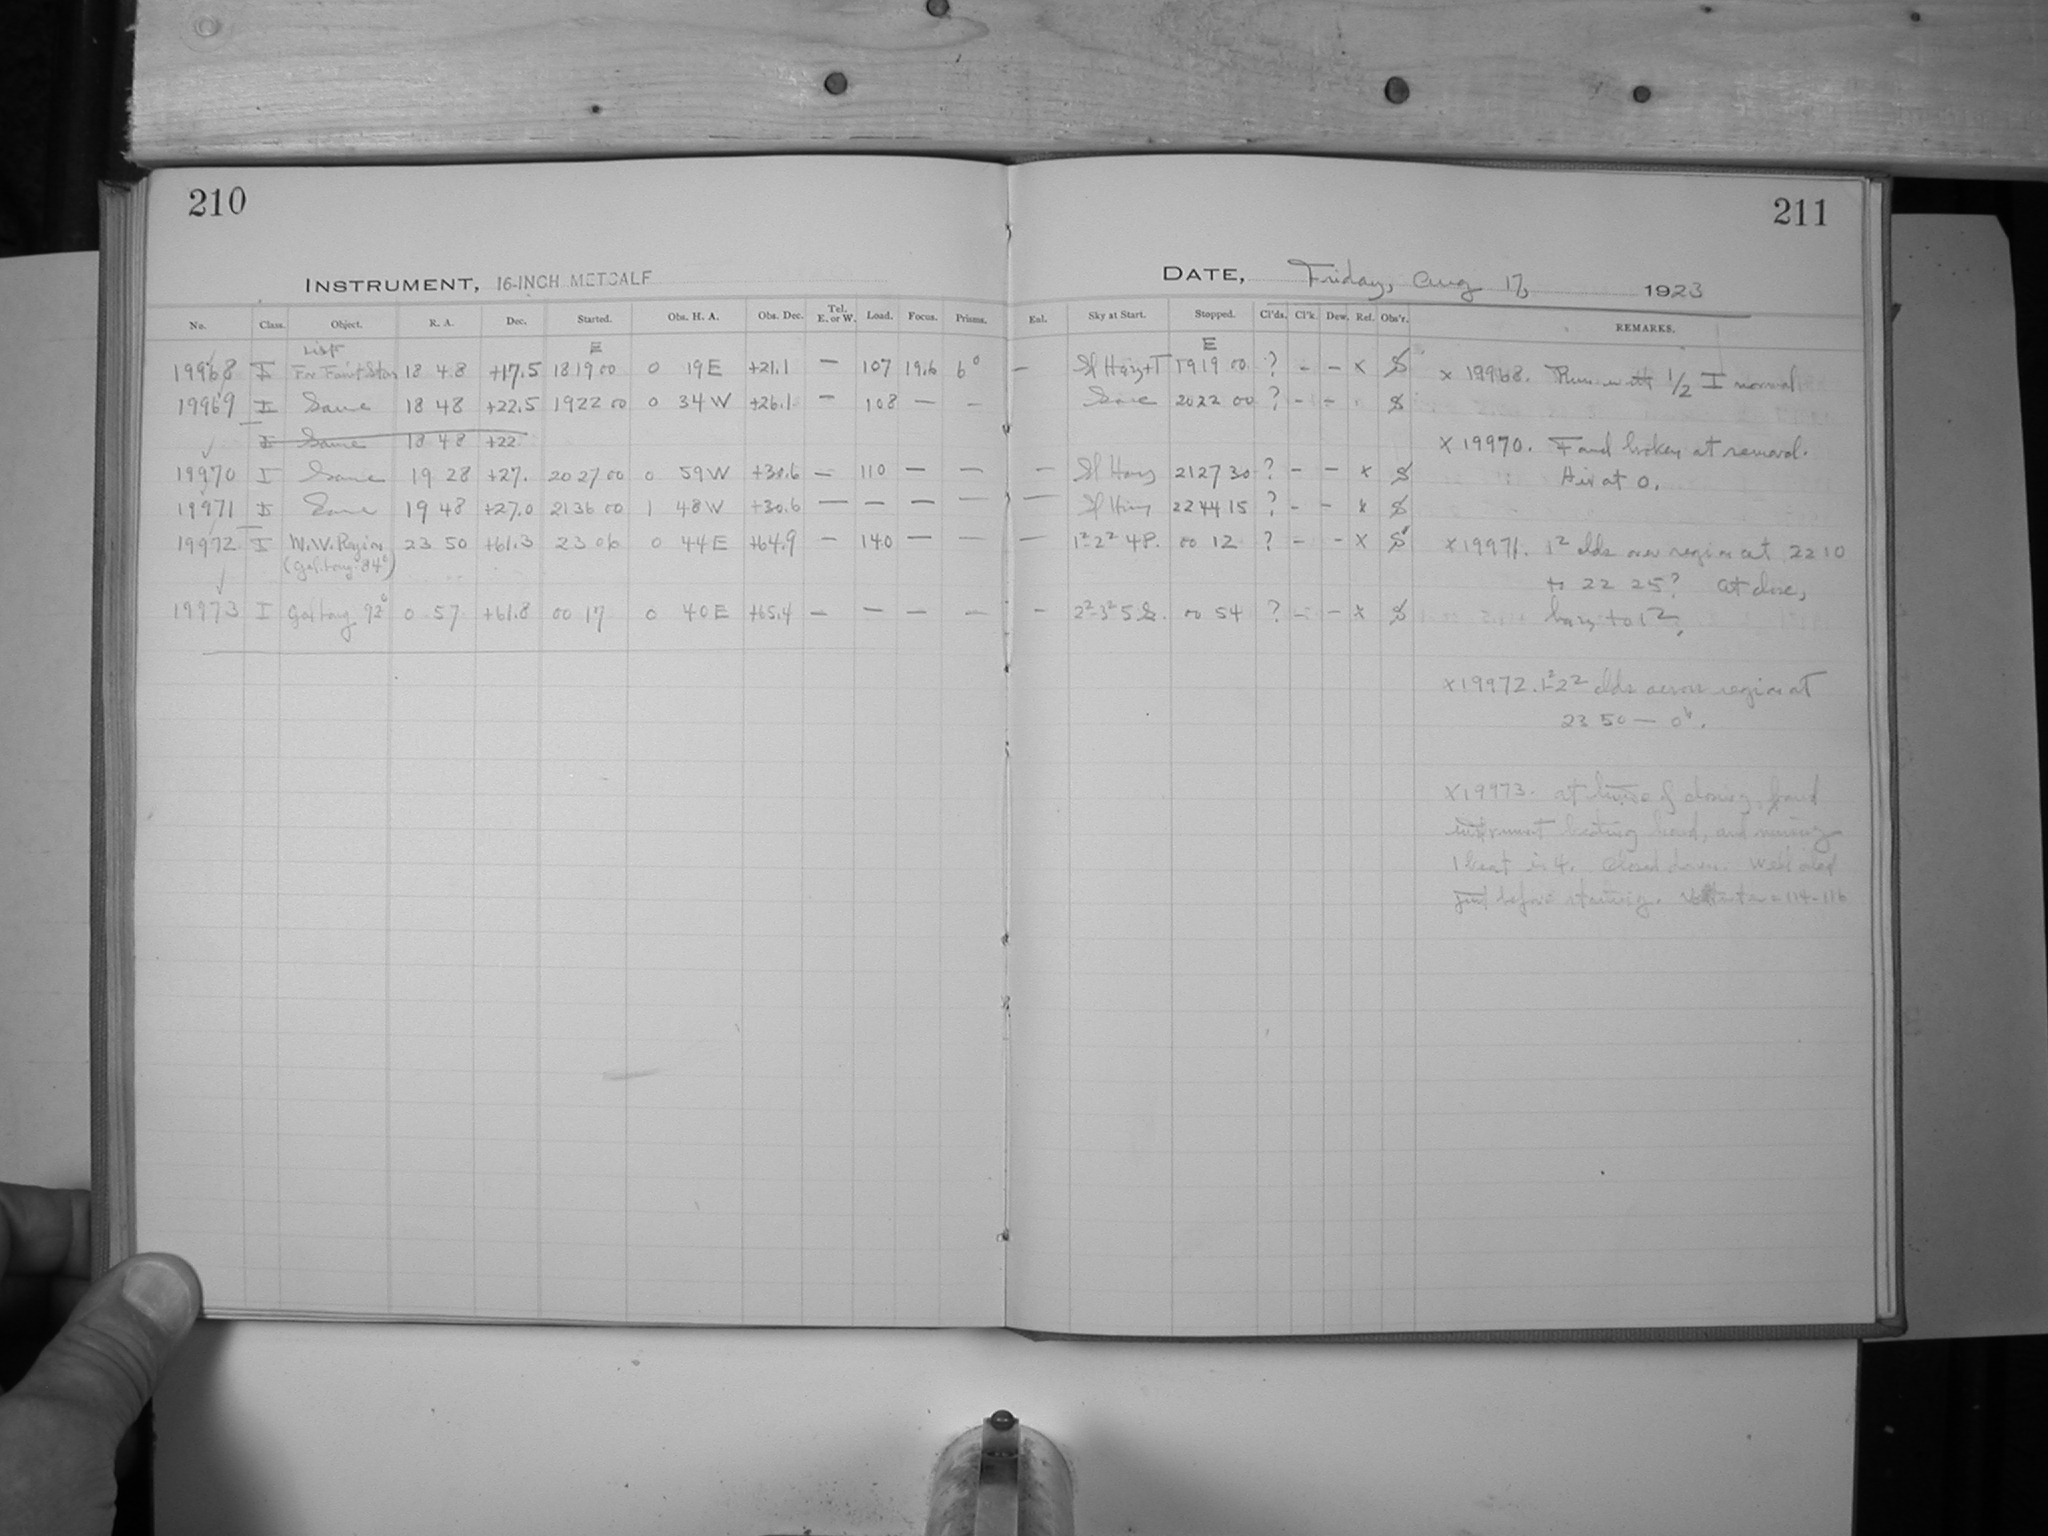 210
211
INSTRUMENT, 16-INCH METCALF
DATE, Friday, Aug 17, 1923
No. Class. Object. R. A. Dec. Started. Obs. H. A. Obs. Dec. Tel. E. or W. Load. Focus. Prisms. Enl. Sky at Start. Stopped. Cl'ds. Cl'k. Dew. Ref. Obs'r. REMARKS.
List E E
19968 I For Faint Stars 18 48 +17.5 18 19 00 0 19 E +21.1 — 107 19.6 6° — Sl Hazy+T 19 19 00 ? - - x S
x 19968. Run with 1/2 I normal.
19969 I Same 18 48 +22.5 19 22 00 0 34 W +26.1 — 108 — — Same 20 22 00 ? - - S
I Same 18 48 +22
x 19970. Found broken at removal.
19970 I Same 19 28 +27. 20 27 00 0 59 W +30.6 — 110 — — — Sl Hazy 21 27 30 ? - - x S
at 0.
19971 I Same 19 48 +27.0 21 36 00 1 48 W +30.6 — — — — — Sl Hazy 22 44 15 ? - - x S
19972 I M.W. Region 23 50 +61.3 23 06 0 44 E +64.9 — 140 — — — 1²-2² 48. 00 12 ? - - x S
(Gal. Long. 84°)
x 19971. 1² clds over region at 22 10
to 22 25? At close,
hazy to 1².
19973 I Gal Long 92° 0 57 +61.8 00 17 0 40 E +65.4 — — — — — 2²-3² 5 00 54 ? - - x S
x 19972. 1²-2² clds across region at
23 50 — 0ʰ.
x 19973. At time of closing, found
instrument beating hard, and missing
1 beat in 4. Closed down. Well oiled
just before starting. = 114-116